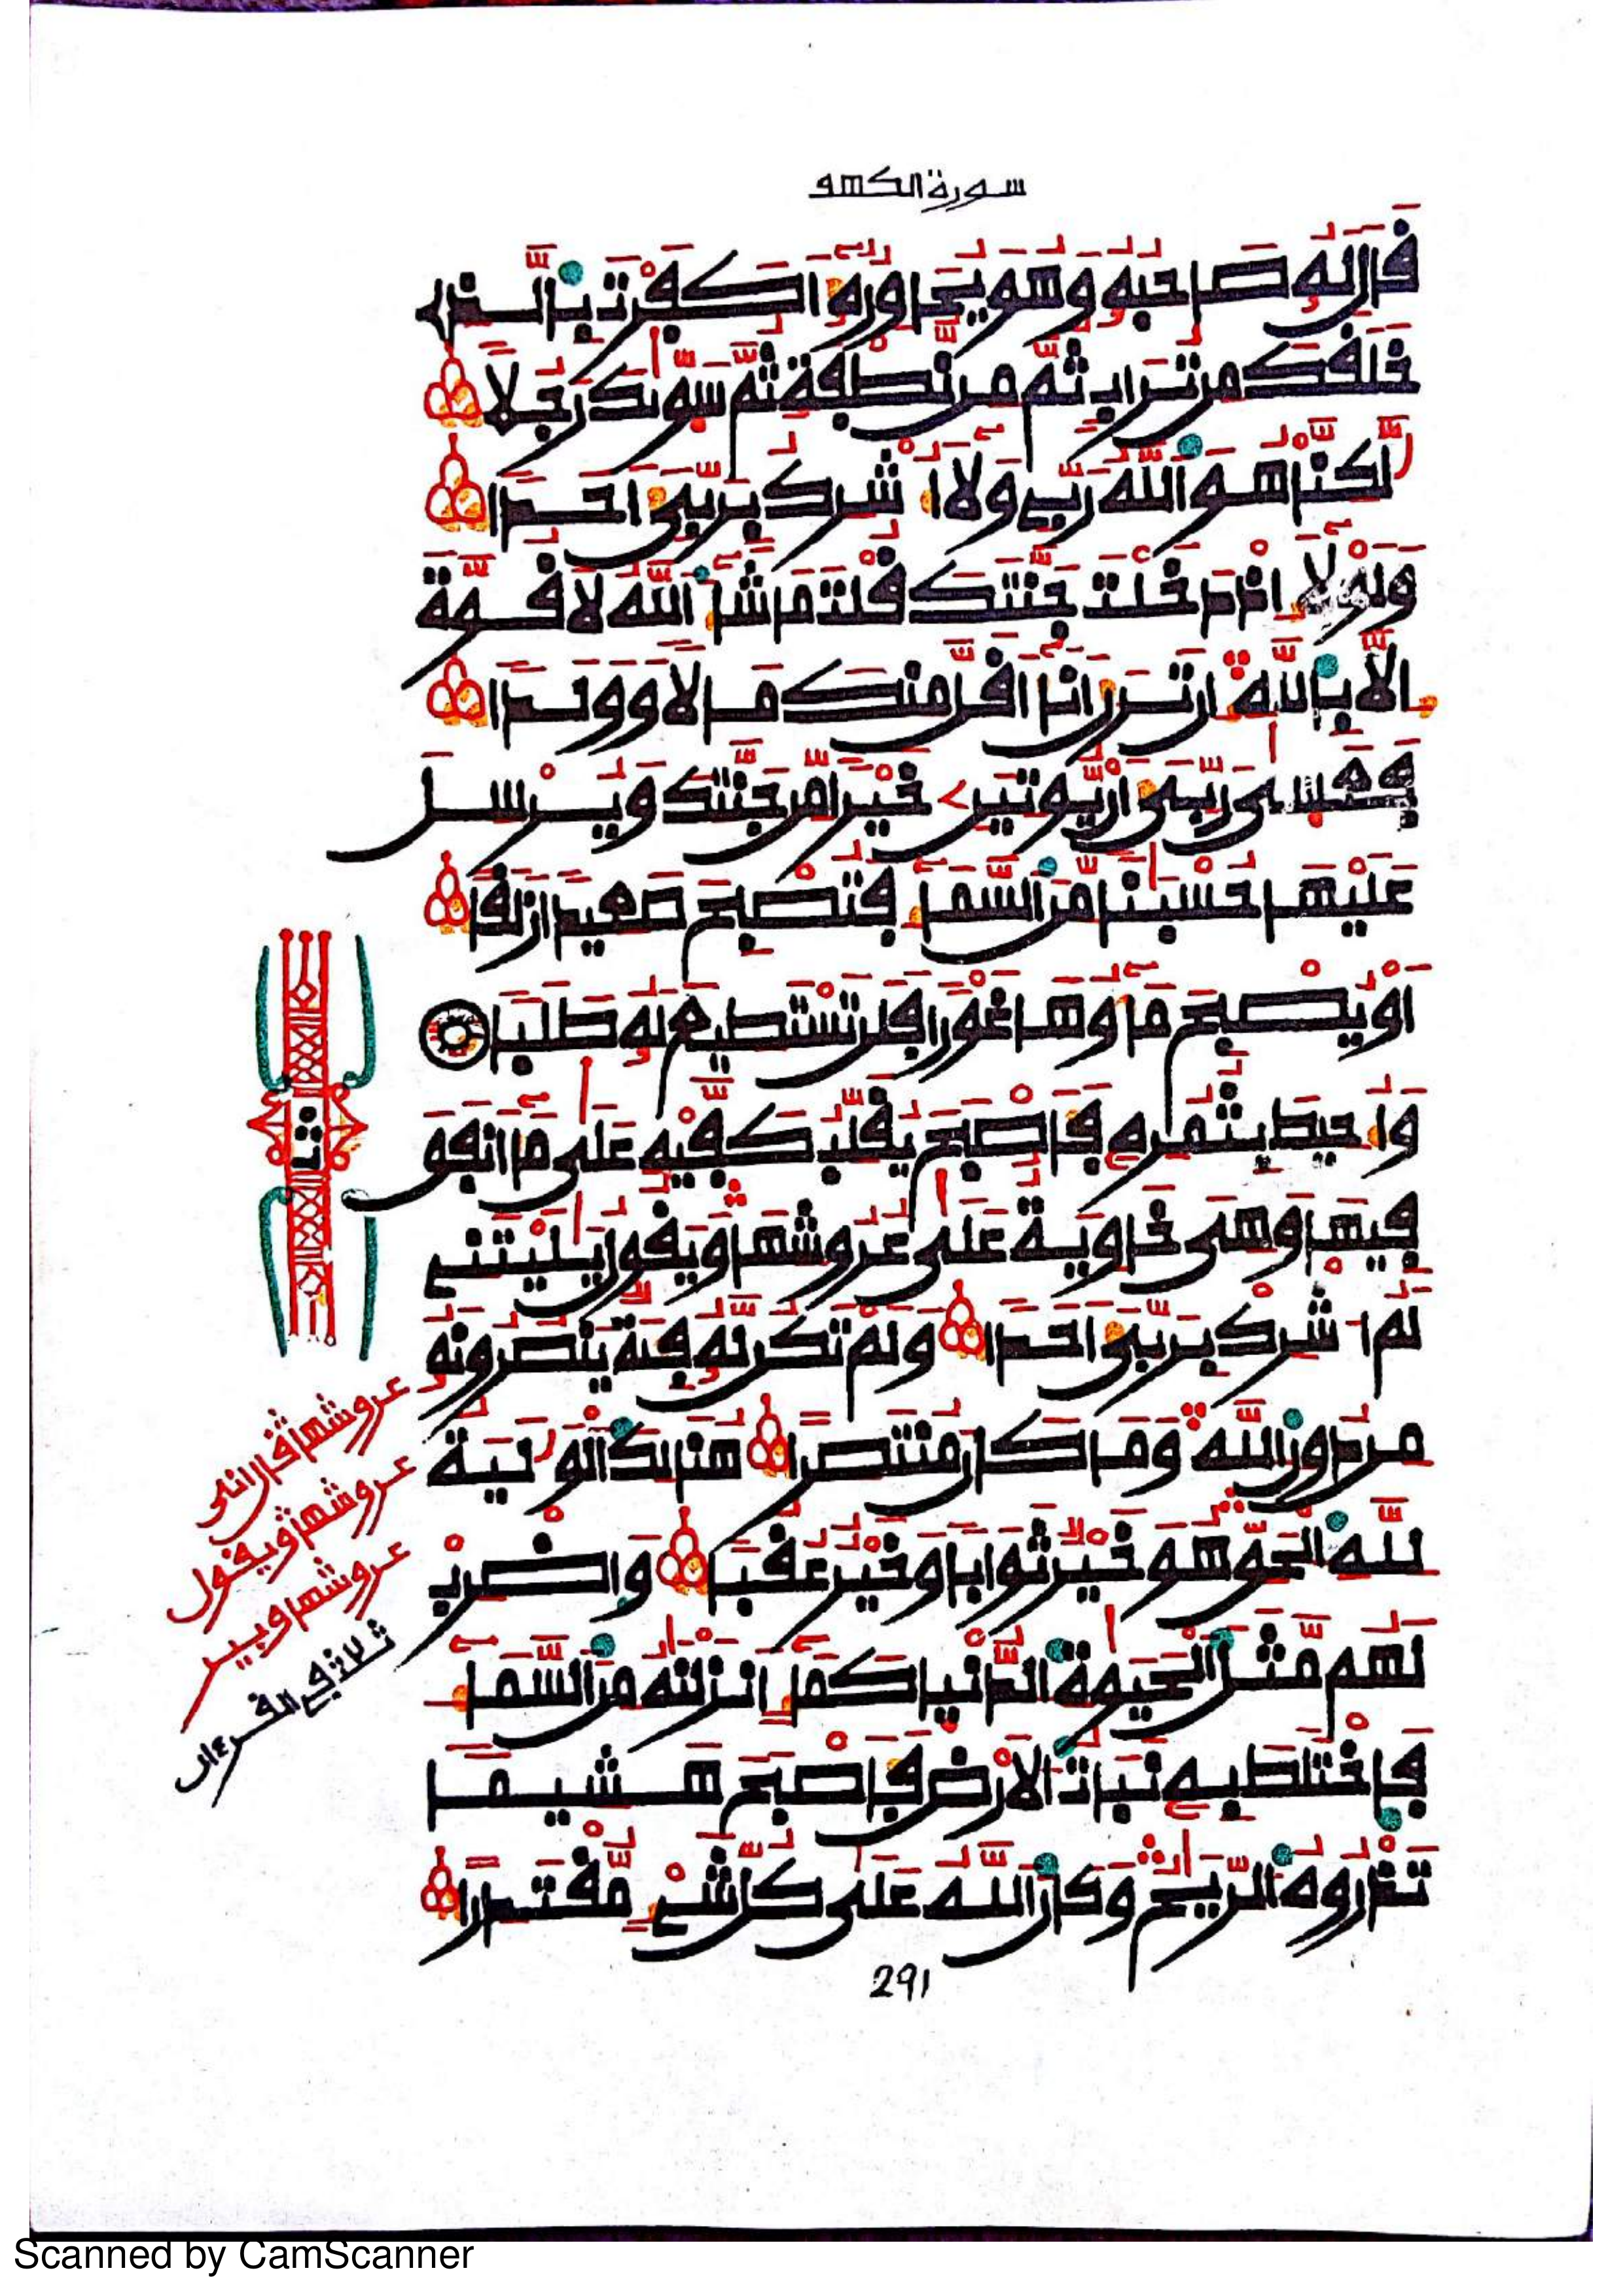 سورة الكهف
قَالَ لَهُۥ صَاحِبُهُۥ وَهُوَ يُحَاوِرُهُۥٓ أَكَفَرْتَ بِالَّذِے
خَلَقَكَ مِن تُرَابٖ ثُمَّ مِن نُّطْفَةٖ ثُمَّ سَوّٜىٰكَ رَجُلًا
لَّٰكِنَّا هُوَ اَللَّهُ رَبِّے وَلَآ أُشْرِكُ بِرَبِّيَ أَحَدًا
وَلَوْلَآ إِذْ دَخَلْتَ جَنَّتَكَ قُلْتَ مَا شَآءَ اَللَّهُ لَا قُوَّةَ
إِلَّا بِاللَّهِ إِن تَرَنِ أَنَآ أَقَلَّ مِنكَ مَالًا وَوَلَدًا
فَعَسٜىٰ رَبِّيَ أَنْ يُّوتِيَنِۦ خَيْرًا مِّن جَنَّتِكَ وَيُرْسِلَ
عَلَيْهَا حُسْبَٰنًا مِّنَ اَلسَّمَآءِ فَتُصْبِحَ صَعِيدًا زَلَقًا
أَوْ يُصْبِحَ مَآؤُهَا غَوْرًا فَلَن تَسْتَطِيعَ لَهُۥ طَلَبًا
وَأُحِيطَ بِثُمُرِهِۦ فَأَصْبَحَ يُقَلِّبُ كَفَّيْهِ عَلَىٰ مَآ أَنفَقَ
فِيهَا وَهْىَ خَاوِيَةٌ عَلَىٰ عُرُوشِهَا وَيَقُولُ يَٰلَيْتَنِے
لَمُ أُشْرِكْ بِرَبِّيَ أَحَدًا وَلَمْ تَكُن لَّهُۥ فِئَةٌ يَنصُرُونَهُۥ
مِن دُونِ اِللَّهِ وَمَا كَانَ مُنتَصِرًا هُنَالِكَ اَلْوَلَٰيَةُ
لِلَّهِ اِلْحَقِّ هُوَ خَيْرٌ ثَوَابًا وَخَيْرٌ عُقُبًا وَاضْرِبْ
لَهُم مَّثَلَ اَلْحَيَوٰةِ اِلدُّنْيَا كَمَآءٍ أَنزَلْنَٰهُ مِنَ اَلسَّمَآءِ
فَاخْتَلَطَ بِهِۦ نَبَاتُ اُلْأَرْضِ فَأَصْبَحَ هَشِيمًا
تَذْرُوهُ اُلرِّيَٰحُ وَكَانَ اَللَّهُ عَلَىٰ كُلِّ شَےْءٖ مُّقْتَدِرًا
291
ثمن
عروشها قال أنى
عروشها ويقول
عروشها وبير
ثلاث في القرءان
Scanned by CamScanner